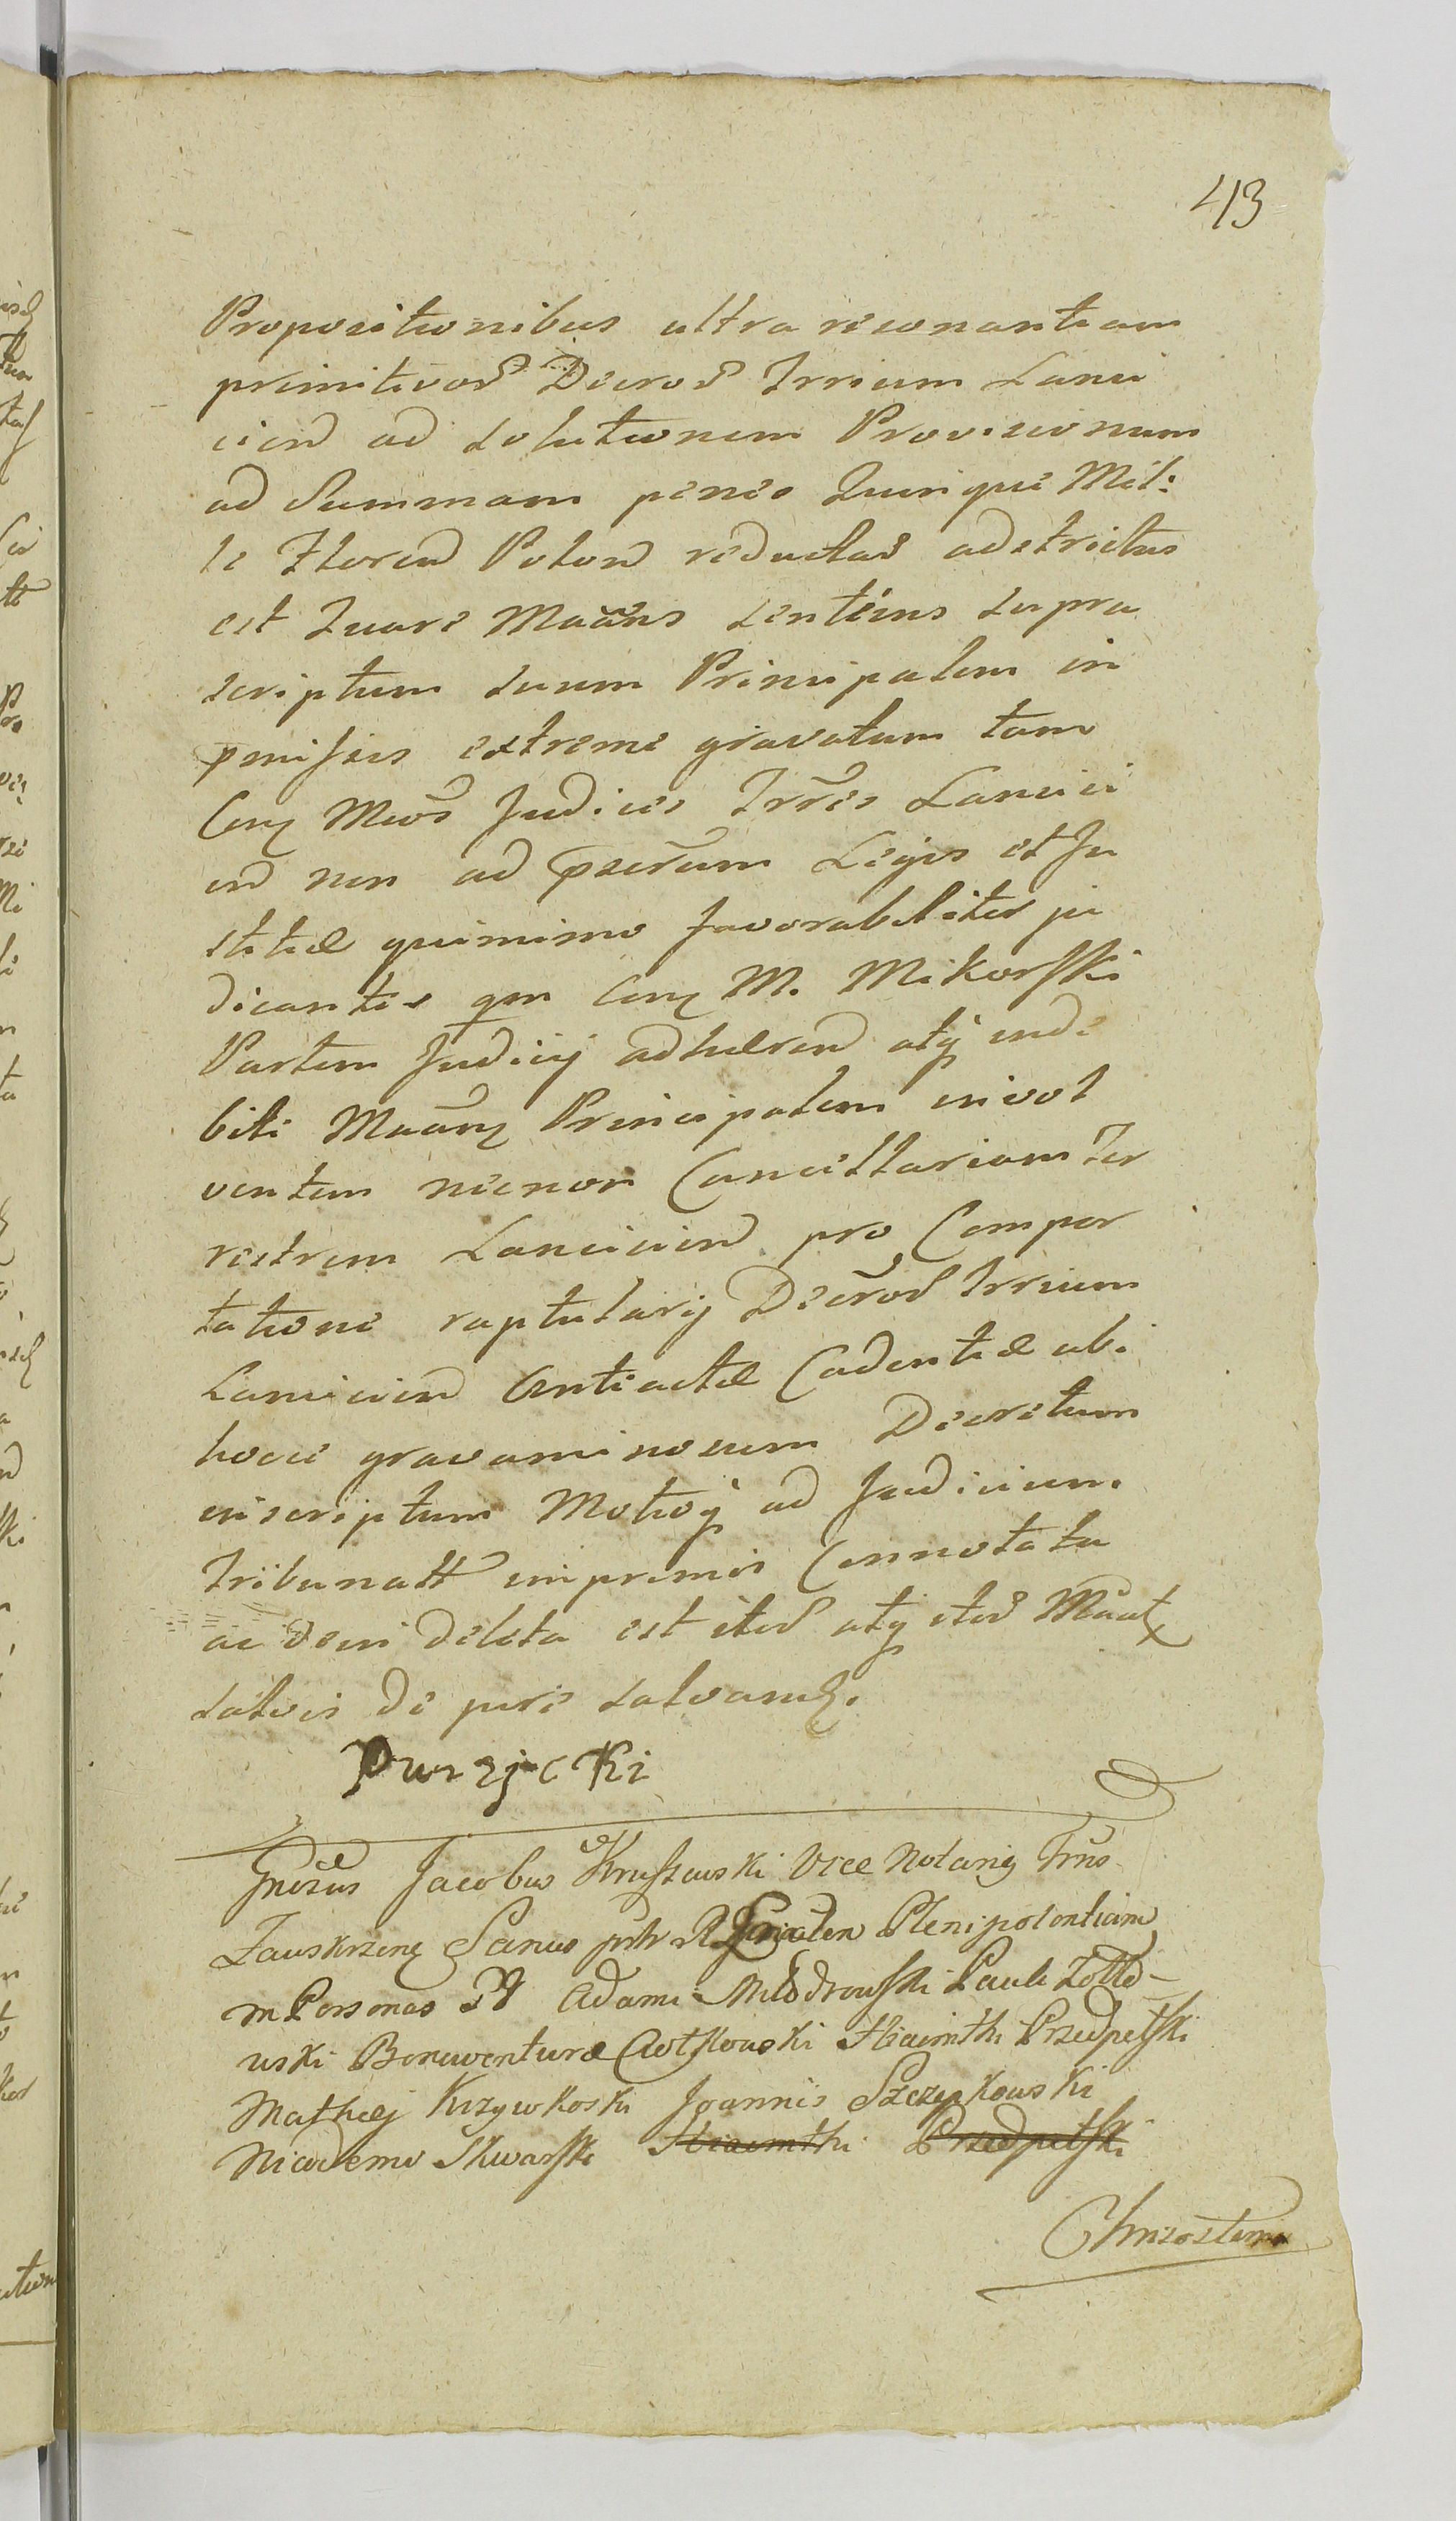 413
Propositionibus ultra resonantiam
primitivor Decror Trrium Lanci
cien ad Solutionem Provisionum
ad Summam penes Quinque Mil:
le Floren Polon reductas adstrictus
est Quare Maans sentiens supra
scriptum suum Principalem in
pmissis extreme gravatum tam
Cong Mcos Judices Trres Lancici
en non ad pscrum Legis et Ju
stitiæ quinimo favorabiliter ju
dicantes qm Cong M. Mikorski
Partem Judicij adhæren atq inde
bite Maang Principalem invol
ventem necnon Cancellariam Ter
restrem Lancicien pro Compor
tatione raptularij Decror Trrium
Lancicien Anteactæ Cadentiæ ubi
hocce gravaminosum Decretum
inscriptum Motioq ad Judicium
Tribunalit imprimis Connotata
ac dein deleta est iter atq iter Maat
salvis de jure salvand.
Purzycki
Gnosus Jacobus Kruszewski Vice Notarig Trris
Zauskrzeng Sanus
Plenipotentiam
in Personas Adami Modrowski Pauli Zołto-
wski Bonaventuræ Hiacinthi Przedpełski
Mathej Krzywkoski Joannis Szczepkowski
Nicodemo Skwarski Hiacinthi Przedpełski
Chrisostomi